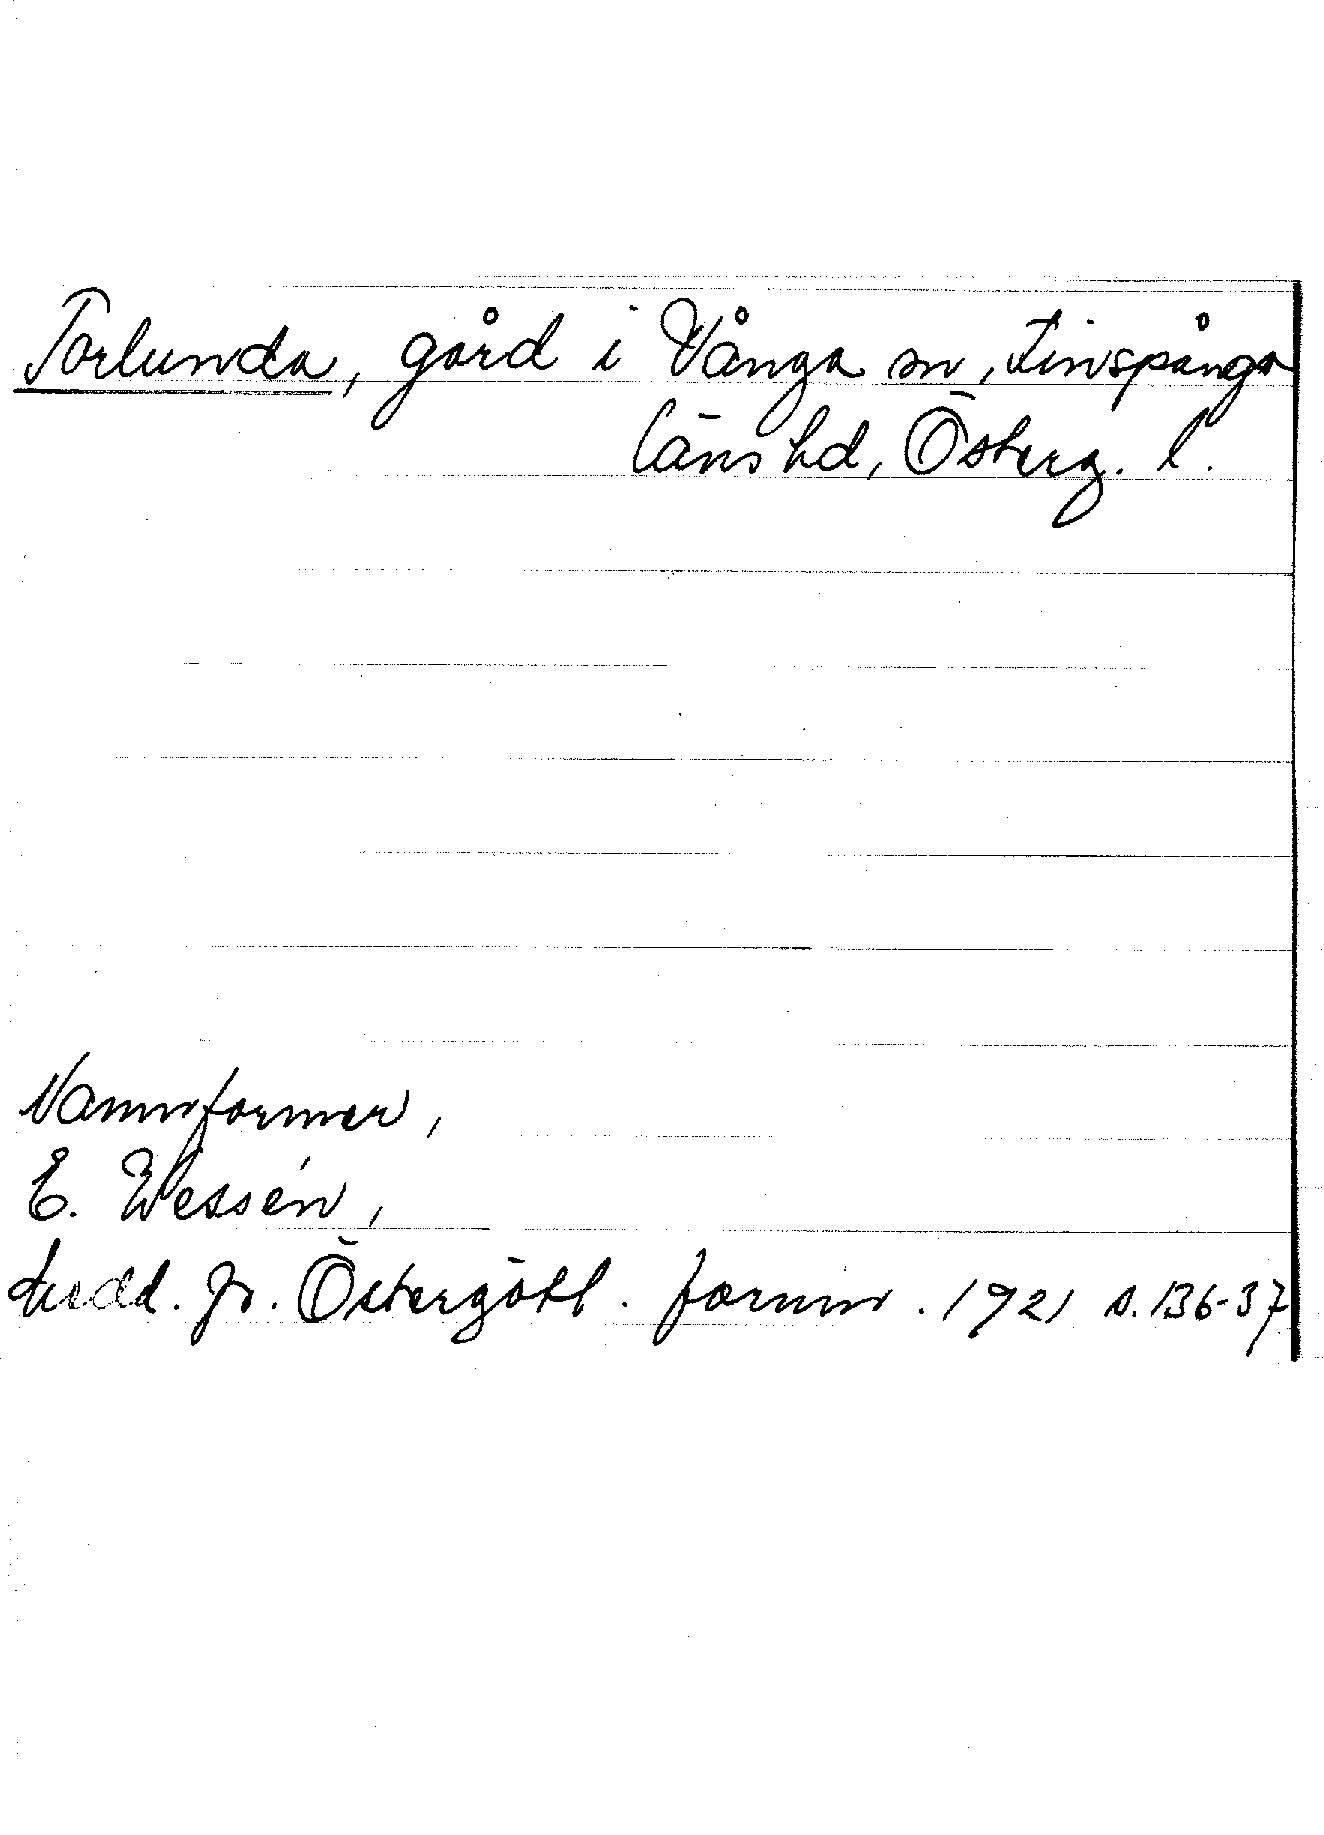 Torlunda, gård i Vånga sn, Finspånga
läns hd, Österg. l.
Namnformer,
E. Wessén,
Medd. fr. Östergötl. fornm. 1921 s. 136-37